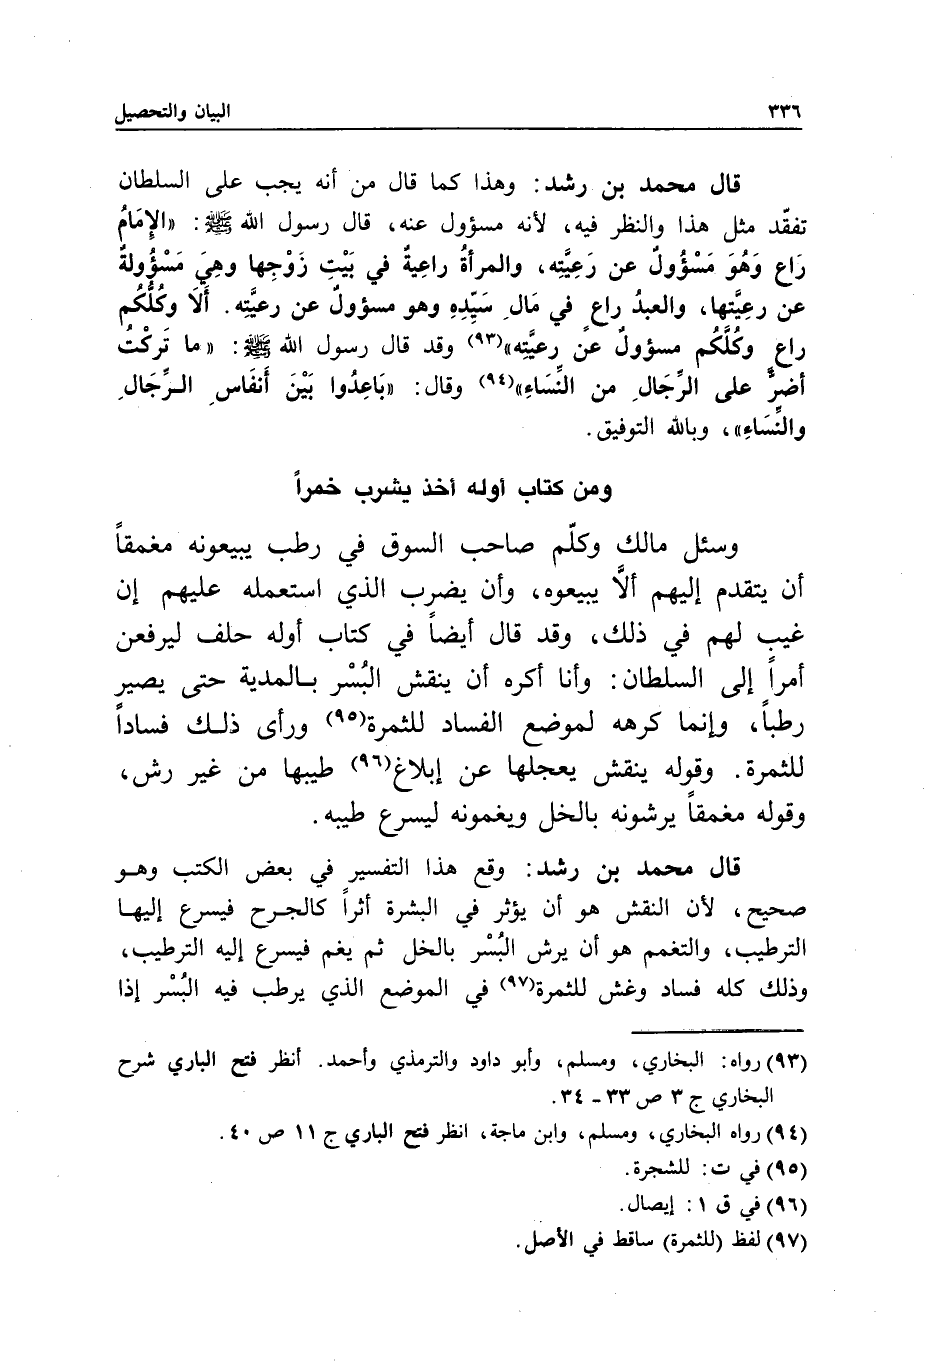 ٣٣٦
البيان والتحصيل
قال محمد بن رشد: وهذا كما قال من أنه يجب على السلطان
تفقّد مثل هذا والنظر فيه، لأنه مسؤول عنه، قال رسول الله ﷺ: «الإِمَامُ
رَاعٍ وَهُوَ مَسْؤُولٌ عن رَعِيَّتِه، والمرأةُ راعِيةٌ في بَيْتِ زَوْجِها وهِيَ مَسْؤُولةٌ
عن رعِيَّتها، والعبدُ راعٍ في مَالِ سَيِّدِهِ وهو مسؤولٌ عن رعيَّتِه. أَلَا وكُلُّكُم
راعٍ وكُلَّكُم مسؤولٌ عن رعيَّتِه»(٩٣) وقد قال رسول الله ﷺ: «ما تَركْتُ
أضرَّ على الرِّجَالِ من النِّسَاءِ»(٩٤) وقال: «بَاعِدُوا بَيْنَ أَنفَاسِ الـرِّجَالِ
والنِّسَاءِ»، وبالله التوفيق.
ومن كتاب أوله أخذ يشرب خمراً
وسئل مالك وكلّم صاحب السوق في رطب يبيعونه مغمقاً
أن يتقدم إليهم ألاَّ يبيعوه، وأن يضرب الذي استعمله عليهم إن
غيب لهم في ذلك، وقد قال أيضاً في كتاب أوله حلف ليرفعن
أمراً إلى السلطان: وأنا أكره أن ينقش البُسْر بـالمدية حتى يصير
رطباً، وإنما كرهه لموضع الفساد للثمرة(٩٥) ورأى ذلـك فساداً
للثمرة. وقوله ينقش يعجلها عن إبلاغ(٩٦) طيبها من غير رش،
وقوله مغمقاً يرشونه بالخل ويغمونه ليسرع طيبه.
قال محمد بن رشد: وقع هذا التفسير في بعض الكتب وهـو
صحيح، لأن النقش هو أن يؤثر في البشرة أثراً كالجـرح فيسرع إليهـا
الترطيب، والتغمم هو أن يرش البُسْر بالخل ثم يغم فيسرع إليه الترطيب،
وذلك كله فساد وغش للثمرة(٩٧) في الموضع الذي يرطب فيه البُسْر إذا
(٩٣) رواه: البخاري، ومسلم، وأبو داود والترمذي وأحمد. أنظر فتح الباري شرح
البخاري ج ٣ ص ٣٣ - ٣٤.
(٩٤) رواه البخاري، ومسلم، وابن ماجة، انظر فتح الباري ج ١١ ص ٤٠.
(٩٥) في ت: للشجرة.
(٩٦) في ق ١: إيصال.
(٩٧) لفظ (للثمرة) ساقط في الأصل.